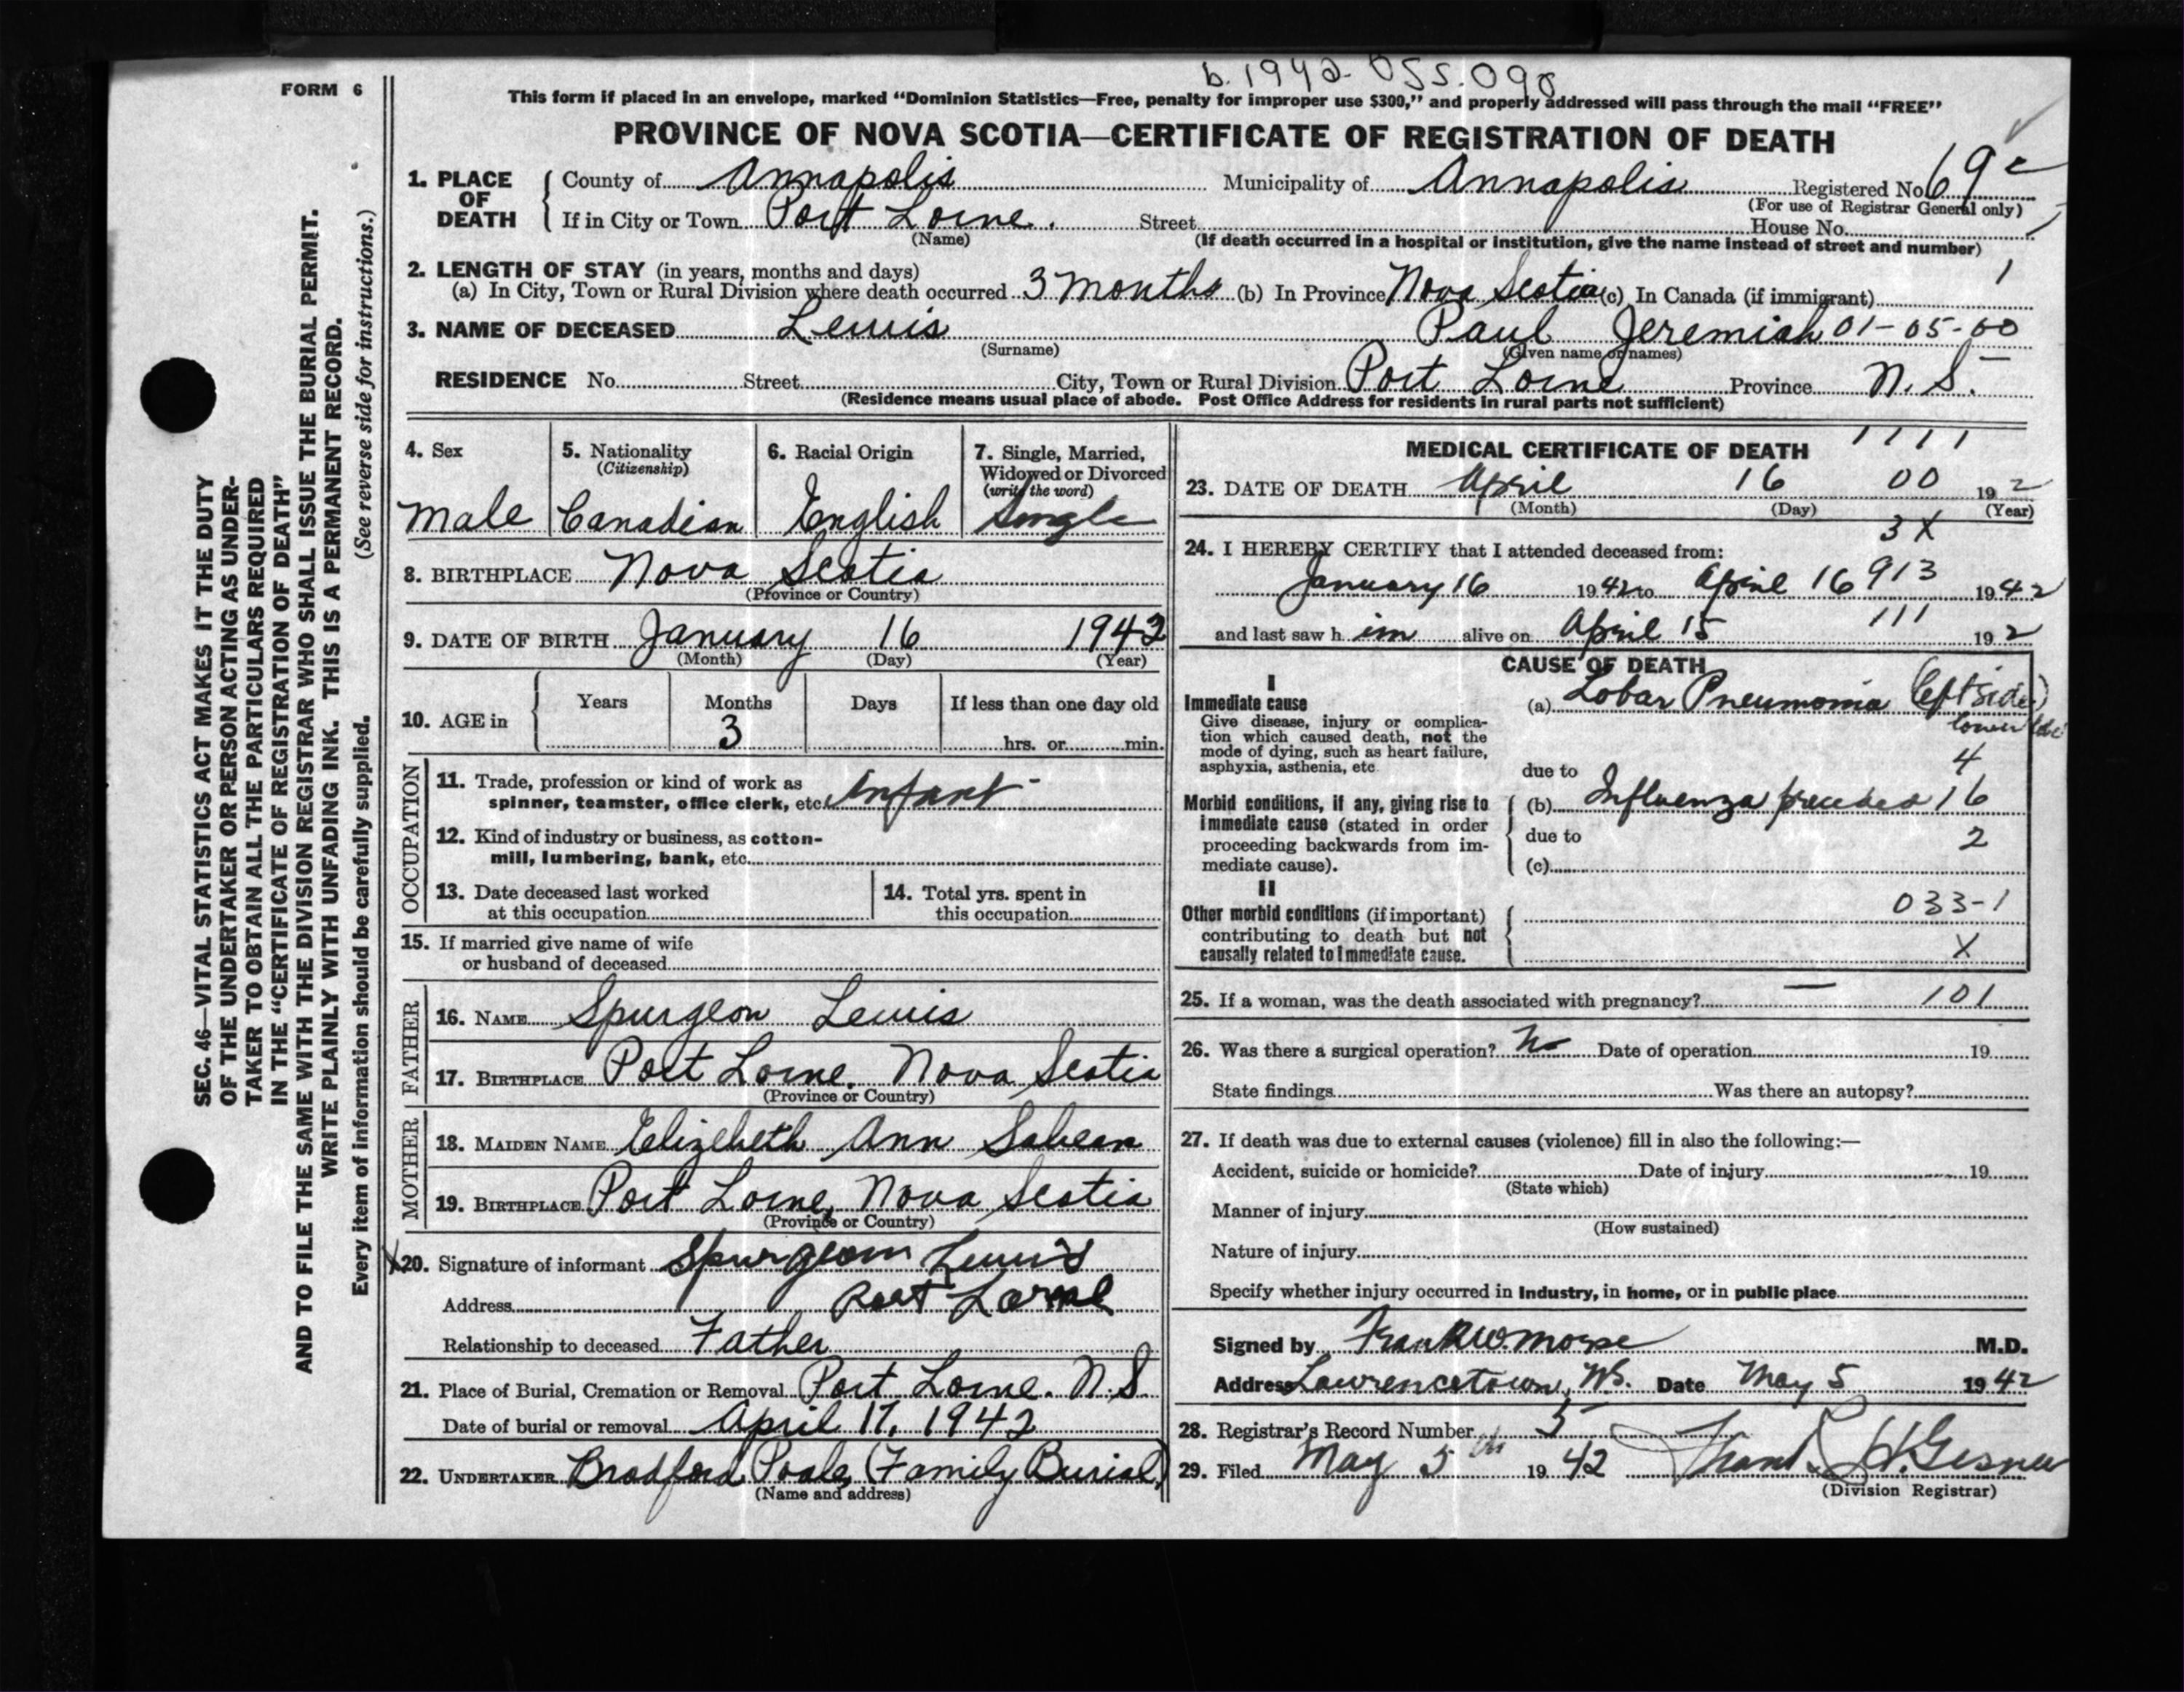 b. 1942. 055.098
FORM 6
This form if placed in an envelope, marked “Dominion Statistics—Free, penalty for improper use $300,” and properly addressed will pass through the mail “FREE”
PROVINCE OF NOVA SCOTIA—CERTIFICATE OF REGISTRATION OF DEATH
SEC. 46—VITAL STATISTICS ACT MAKES IT THE DUTY
OF THE UNDERTAKER OR PERSON ACTING AS UNDER-
TAKER TO OBTAIN ALL THE PARTICULARS REQUIRED
IN THE “CERTIFICATE OF REGISTRATION OF DEATH”
AND TO FILE THE SAME WITH THE DIVISION REGISTRAR WHO SHALL ISSUE THE BURIAL PERMIT.
WRITE PLAINLY WITH UNFADING INK. THIS IS A PERMANENT RECORD.
Every item of information should be carefully supplied. (See reverse side for instructions.)
1. PLACE OF DEATH
County of Annapolis Municipality of Annapolis Registered No. 69c
(For use of Registrar General only)
If in City or Town Port Lorne. Street House No.
(Name) (If death occurred in a hospital or institution, give the name instead of street and number)
2. LENGTH OF STAY (in years, months and days) 1
(a) In City, Town or Rural Division where death occurred 3 months (b) In Province Nova Scotia (c) In Canada (if immigrant)
3. NAME OF DECEASED Lewis Paul Jeremiah 01-05-00
(Surname) (Given name or names)
RESIDENCE No. Street City, Town or Rural Division Port Lorne Province N. S.
(Residence means usual place of abode. Post Office Address for residents in rural parts not sufficient)
4. Sex
Male
5. Nationality
(Citizenship)
Canadian
6. Racial Origin
English
7. Single, Married,
Widowed or Divorced
(write the word)
Single
8. BIRTHPLACE Nova Scotia
(Province or Country)
9. DATE OF BIRTH January 16 1942
(Month) (Day) (Year)
10. AGE in Years Months Days If less than one day old
3 hrs. or min.
OCCUPATION
11. Trade, profession or kind of work as
spinner, teamster, office clerk, etc. Infant -
12. Kind of industry or business, as cotton-
mill, lumbering, bank, etc.
13. Date deceased last worked
at this occupation
14. Total yrs. spent in
this occupation
15. If married give name of wife
or husband of deceased
FATHER
16. NAME Spurgeon Lewis
17. BIRTHPLACE Port Lorne, Nova Scotia
(Province or Country)
MOTHER
18. MAIDEN NAME Elizebeth Ann Sabean
19. BIRTHPLACE Port Lorne, Nova Scotia
(Province or Country)
X 20. Signature of informant Spurgeon Lewis
Address Port Lorne
Relationship to deceased Father
21. Place of Burial, Cremation or Removal Port Lorne. N.S.
Date of burial or removal April 17, 1942
22. UNDERTAKER Bradford Poole (Family Burial)
(Name and address)
MEDICAL CERTIFICATE OF DEATH 1111
23. DATE OF DEATH April 16 00 192
(Month) (Day) (Year)
3X
24. I HEREBY CERTIFY that I attended deceased from:
January 16 1942 to April 16 913 1942
and last saw him alive on April 15 111 192
CAUSE OF DEATH
I
Immediate cause
Give disease, injury or complica-
tion which caused death, not the
mode of dying, such as heart failure,
asphyxia, asthenia, etc.
(a) Lobar Pneumonia (left side)
lower lobe
4
due to
Morbid conditions, if any, giving rise to
immediate cause (stated in order
proceeding backwards from im-
mediate cause).
(b) Influenza preceded 16
due to 2
(c)
II
Other morbid conditions (if important)
contributing to death but not
causally related to immediate cause.
033-1
X
25. If a woman, was the death associated with pregnancy? — 101
26. Was there a surgical operation? No Date of operation 19
State findings Was there an autopsy?
27. If death was due to external causes (violence) fill in also the following:—
Accident, suicide or homicide? Date of injury 19
(State which)
Manner of injury
(How sustained)
Nature of injury
Specify whether injury occurred in Industry, in home, or in public place
Signed by Frank W. Morse M.D.
Address Lawrencetown, N.S. Date May 5 1942
28. Registrar's Record Number 5
29. Filed May 5th 1942 Frank H. Gesner
(Division Registrar)